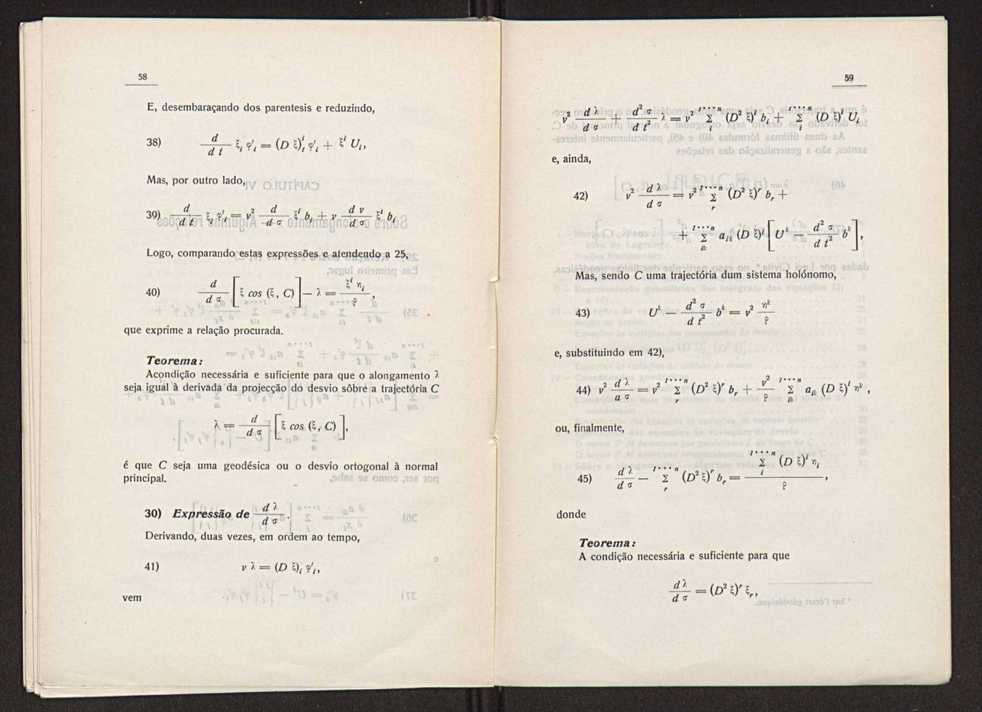 58
E, desembaraçando dos parentesis e reduzindo,
38) d/dt ξ_i φ'_i = (D ξ)'_i φ'_i + ξ^i U_i,
Mas, por outro lado,
39) d/dt ξ_i φ'_i = v² d/dσ ξ^i b_i + v dv/dσ ξ^i b_i
Logo, comparando estas expressões e atendendo a 25,
40) d/dσ [ξ cos (ξ, C)] — λ = ξ^i η_i / ρ,
que exprime a relação procurada.
Teorema:
Acondição necessária e suficiente para que o alongamento λ
seja igual à derivada da projecção do desvio sôbre a trajectória C
λ = d/dσ [ξ cos (ξ, C)],
é que C seja uma geodésica ou o desvio ortogonal à normal
principal.
30) Expressão de dλ/dσ.
Derivando, duas vezes, em ordem ao tempo,
41) v λ = (D ξ)_i φ'_i,
vem
59
v² dλ/dσ + d²σ/dt² λ = v² Σ_i^{1···n} (D² ξ)^i b_i + Σ_i^{1···n} (D ξ)^i U_i
e, ainda,
42) v² dλ/dσ = v² Σ_r^{1···n} (D² ξ)^r b_r +
+ Σ_{ik}^{1···n} a_{ik} (D ξ)^i [U^k — d²σ/dt² b^k],
Mas, sendo C uma trajectória dum sistema holónomo,
43) U^k — d²σ/dt² b^k = v² η^k/ρ
e, substituindo em 42),
44) v² dλ/aσ = v² Σ_r^{1···n} (D² ξ)^r b_r + v²/ρ Σ_{ik}^{1···n} a_{ik} (D ξ)^i η^k,
ou, finalmente,
45) dλ/dσ — Σ_r^{1···n} (D² ξ)^r b_r = Σ_i^{1···n} (D ξ)^i η_i / ρ,
donde
Teorema:
A condição necessária e suficiente para que
dλ/dσ = (D² ξ)^r ξ_r,